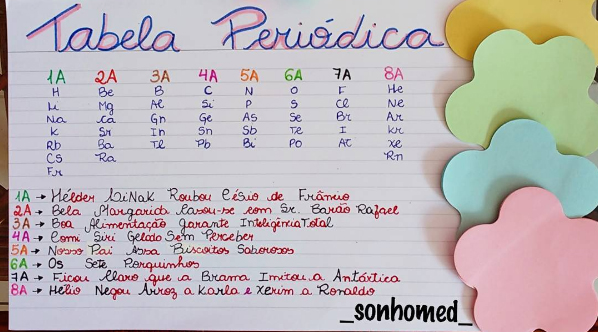 Tabela Periódica
1A 2A 3A 4A 5A 6A 7A 8A
H Be B C N O F He
Li Mg Al Si P S Cl Ne
Na Ca Gn Ge As Se Br Ar
K Sr In Sn Sb Te I Kr
Rb Ba Tl Pb Bi Po At Xe
Cs Ra Rn
Fr
1A → Hélder LiNaK Roubou Césio de Frâncio
2A → Bela Margarida Casou-se com Sr. Barão Rafael
3A → Boa Alimentação Garante Inteligência Total
4A → Comi Siri Gelado Sem Perceber
5A → Nosso Pai Assa Biscoitos Saborosos
6A → Os Sete Porquinhos
7A → Ficou Claro que a Brama Imitou a Antártica
8A → Hélio Negou Arroz a Karla e Xerim a Ronaldo
_sonhomed_